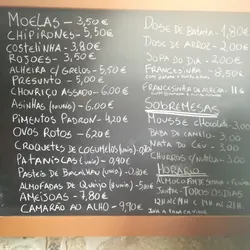 MOELAS - 3,50€
CHIPIRONES - 5,50€
COSTELINHA - 3,80€
ROJOES - 3,50€
ALHEIRA C/ GRELOS - 5,50€
PRESUNTO - 5,00€
CHOURIÇO ASSADO - 6,00€
ASINHAS (6unid) - 6,00€
PIMENTOS PADRON - 4,20€
OVOS ROTOS - 6,20€
CROQUETES DE COGUMELOS (unid)
PATANISCAS (unid) - 0,90€
PASTEIS DE BACALHAU (unid) - 0,80€
ALMOFADAS DE QUEIJO (4unid) - 5,80€
AMEIJOAS - 7,80€
CAMARÃO AO ALHO - 9,90€
DOSE DE BATATA - 1,80€
DOSE DE ARROZ - 2,00€
SOPA DO DIA - 2,00€
FRANCESINHA - 8,50€
FRANCESINHA DA
SOBREMESAS
MOUSSE CHOCOLATE - 3,00
BABA DE CAMELO - 3,00
NATA DO CEU - 3,00
CHURROS C/NUTELLA - 3,00
HORARIO
ALMOÇO
JANTAR - TODOS OS DIAS
12H